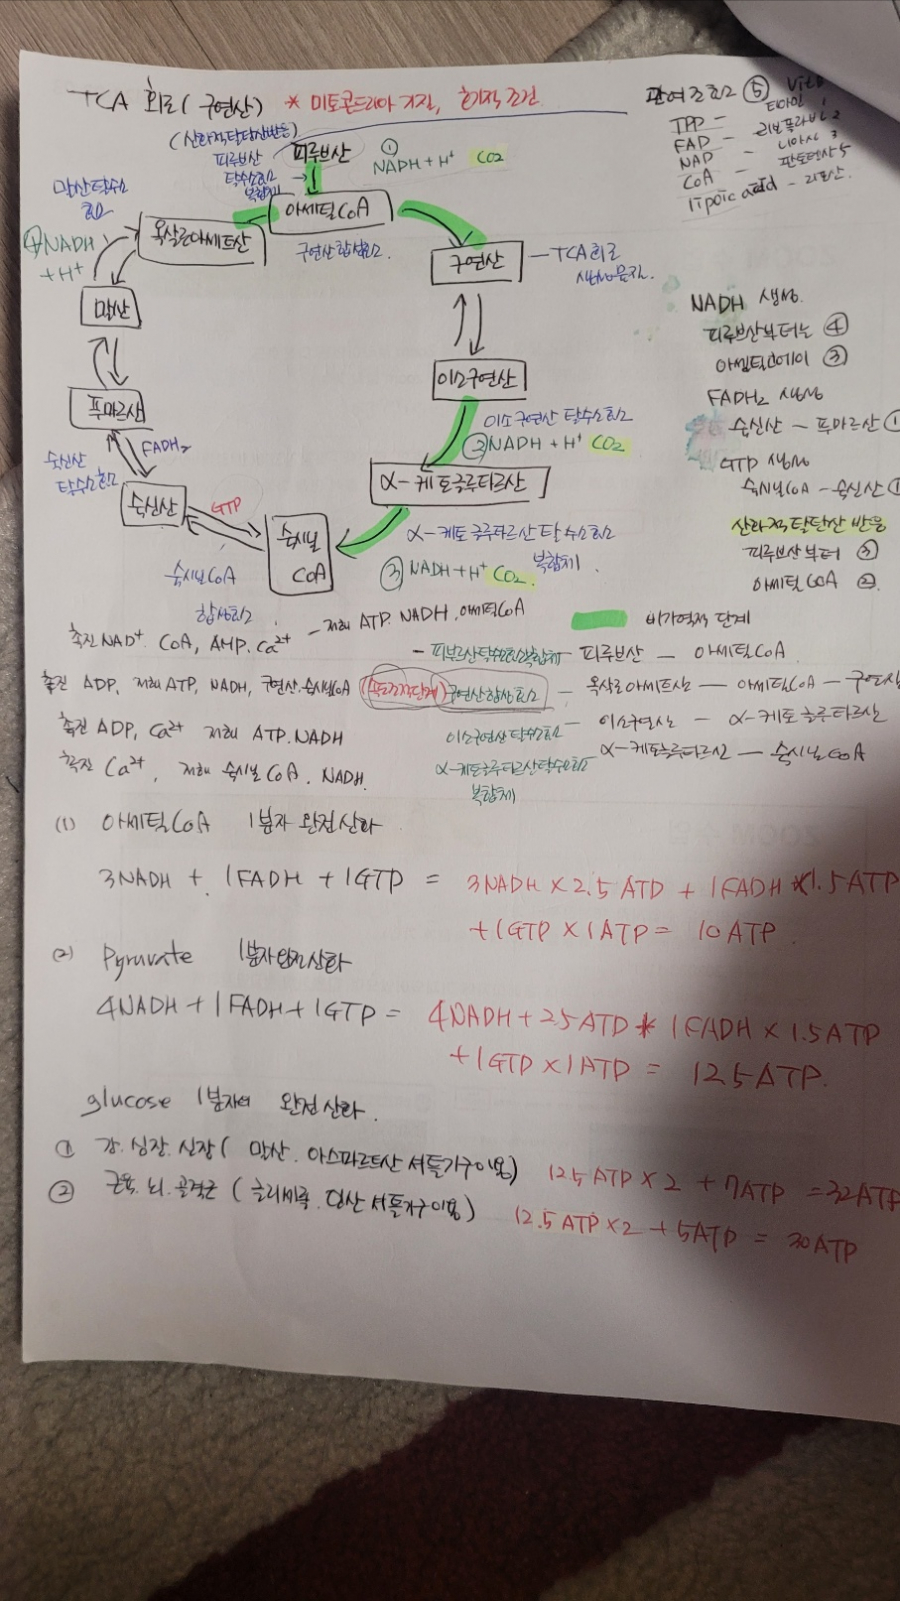 TCA 회로(구연산) * 미토콘드리아 기질, 호기적 조건
(산화적탈탄산반응)
피루브산
탈수소효소
복합체
피루브산
① NADH + H+ CO2
아세틸CoA
구연산합성효소.
옥살로아세트산
말산탈수소
효소
④NADH
+ H+
말산
푸마르산
숙신산
탈수소효소
FADH2
숙신산
GTP
숙시닐CoA
합성효소
숙시닐
CoA
구연산
TCA회로
생성물질.
이소구연산
이소구연산 탈수소효소
②NADH + H+ CO2
α-케토글루타르산
α-케토글루타르산 탈수소효소
복합체.
③ NADH + H+ CO2.
관여조효소 ⑤ Vit B
TPP - 티아민 1
FAD - 리보플라빈 2
NAD - 니아신 3
CoA - 판토텐산 5
lipoic acid - 리포산.
NADH 생성.
피루브산부터는 ④
아세틸코에이 ③
FADH2 생성
숙신산 - 푸마르산 ①
GTP 생성
숙시닐CoA - 숙신산 ①
산화적 탈탄산 반응
피루브산부터 ③
아세틸 CoA ②
비가역적 단계
촉진 NAD+ CoA, AMP. Ca2+ - 저해 ATP. NADH. 아세틸CoA
- 피루브산탈수소효소복합체 - 피루브산 - 아세틸CoA
촉진 ADP, 저해 ATP, NADH, 구연산.숙시닐CoA (속도조절단계) 구연산합성효소 - 옥살로아세트산 - 아세틸CoA - 구연산
촉진 ADP, Ca2+ 저해 ATP.NADH
이소구연산 탈수소효소 - 이소구연산 - α-케토글루타르산
촉진 Ca2+, 저해 숙시닐 CoA. NADH.
α-케토글루타르산탈수소효소 - α-케토글루타르산 - 숙시닐CoA
복합체
(1) 아세틸CoA 1분자 완전산화
3NADH + 1FADH + 1GTP = 3NADH x 2.5 ATD + 1FADH x 1.5ATP
+ 1GTP x 1ATP = 10ATP.
(2) Pyruvate 1분자완전산화
4NADH + 1FADH + 1GTP = 4NADH + 2.5 ATD * 1FADH x 1.5ATP
+ 1GTP x 1ATP = 12.5ATP.
glucose 1분자의 완전산화.
① 간.심장.신장( 말산. 아스파르트산 셔틀기구이용) 12.5 ATP x 2 + 7ATP = 32ATP
② 근육. 뇌. 골격근 ( 글리세롤. 인산 셔틀기구이용) 12.5 ATP x 2 + 5ATP = 30ATP